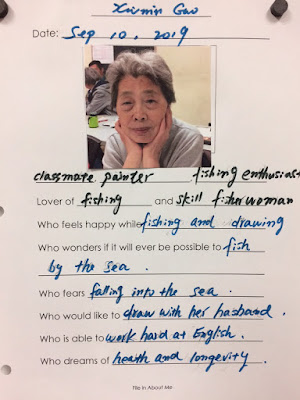 Xiumin Gao
Date: Sep 10, 2019
classmate painter fishing enthusiast
Lover of fishing and skill fisherwoman
Who feels happy while fishing and drawing
Who wonders if it will ever be possible to fish
by the sea.
Who fears falling into the sea.
Who would like to draw with her hasband.
Who is able to work hard at English.
Who dreams of heath and longevity.
Fill in About Me